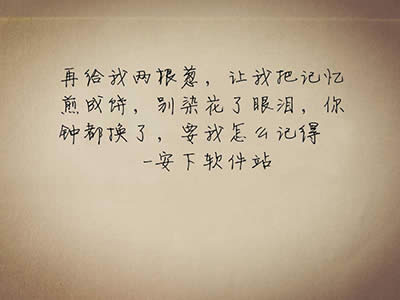 再给我两根葱，让我把记忆
煎成饼，别染花了眼泪，你
钟都换了，要我怎么记得
-安下软件站